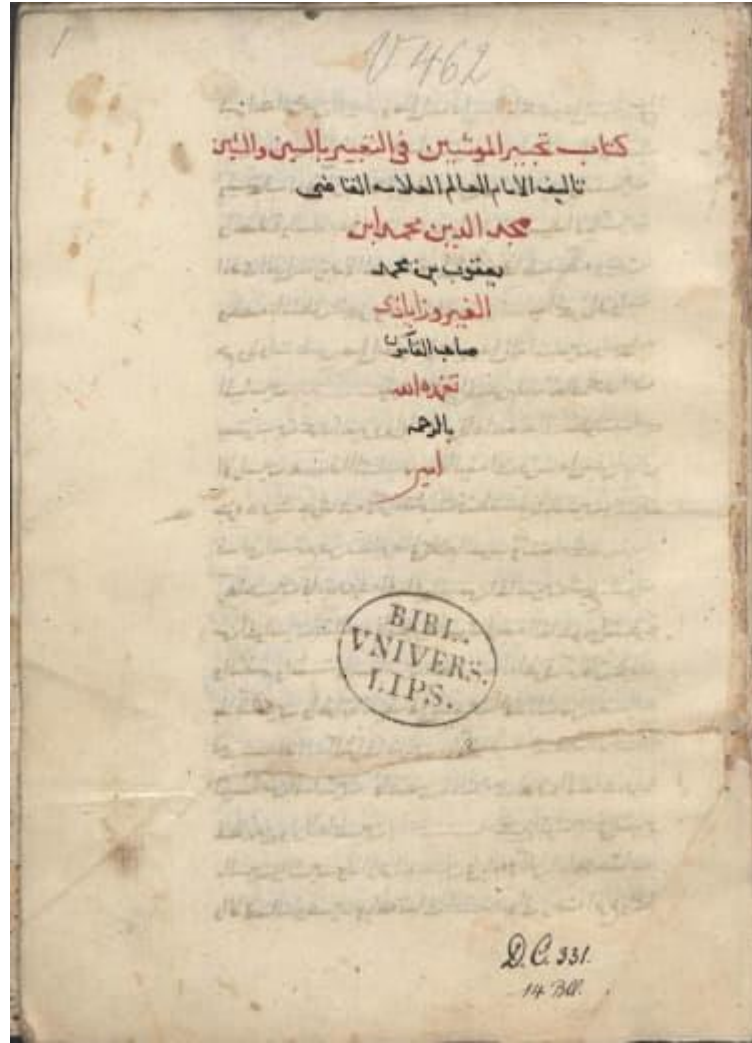 1
V 462
كتاب تحبير الموشين في التعبير بالسين والشين
تاليف الامام العالم العلامه القاضى
مجد الدين محمد ابن
يعقوب بن محمد
الفيروزاباذي
صاحب القاموس
تغمده الله
بالرحمه
امين
BIBL.
VNIVERS.
LIPS.
D.C. 331.
14 Bll.